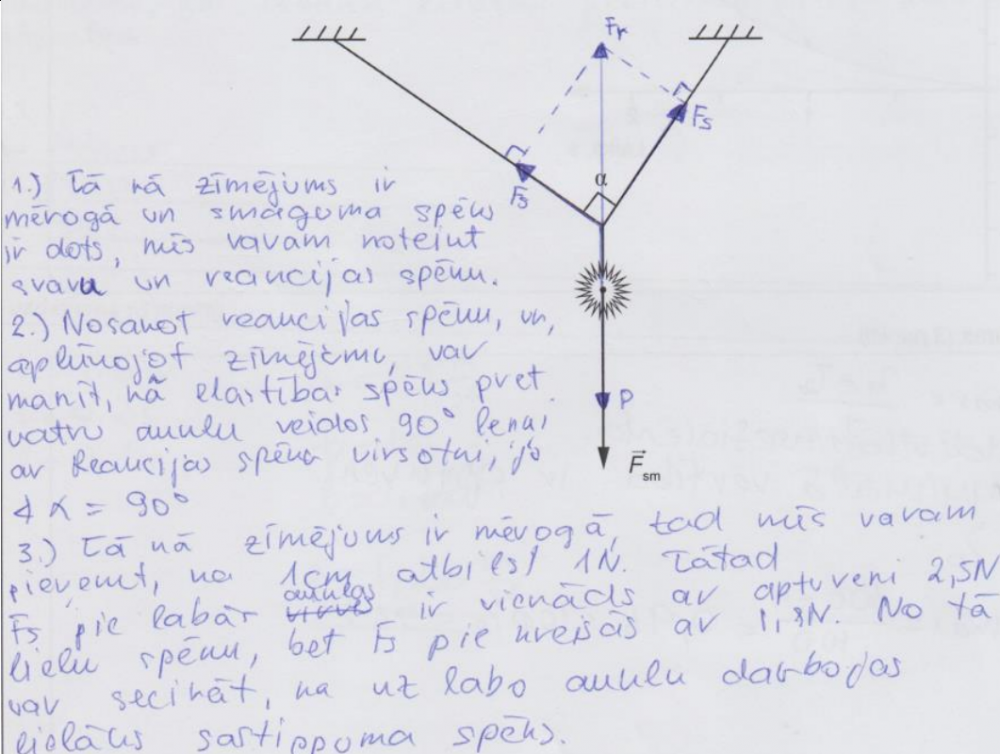 Fr
Fs
Fs
α
P
F⃗sm
1.) Tā kā zīmējums ir
mērogā un smaguma spēks
ir dots, mēs varam noteikt
svaru un reakcijas spēku.
2.) Nosakot reakcijas spēku, un,
aplūkojot zīmējumu, var
manīt, kā elastības spēks pret
katru auklu veidos 90° leņķi
ar Reakcijas spēka virsotni, jo
∢ α = 90°
3.) Tā kā zīmējums ir mērogā, tad mēs varam
pieņemt, ka 1cm atbilst 1N. Tātad
Fs pie labās auklas ir vienāds ar aptuveni 2,5N
lielu spēku, bet Fs pie kreisās ar 1,3N. No tā
var secināt, ka uz labo auklu darbojas
lielāks sastiepuma spēks.